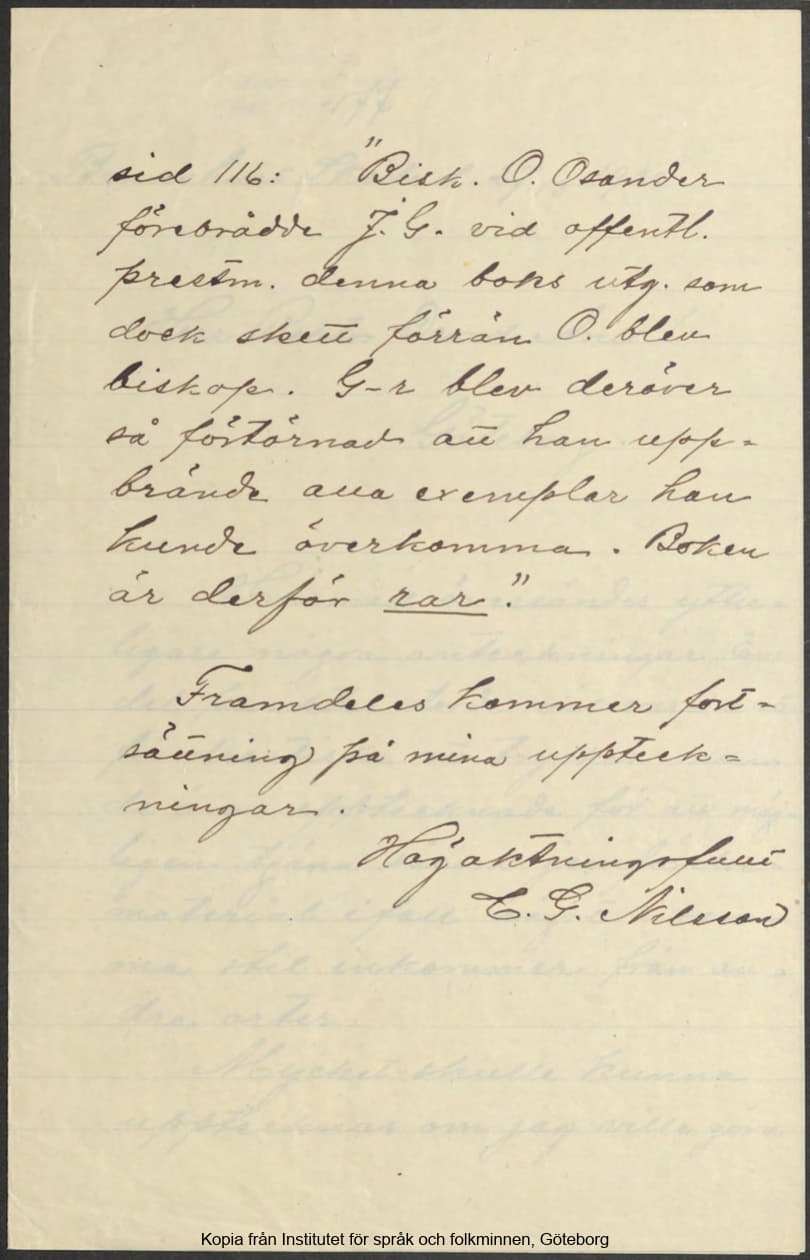 sid 116: "Bisk. O. Osander
förebrådde J. G. vid offentl.
prestm. denna boks utg. som
dock skett förrän O. blev
biskop. G-r blev deröver
så förtörnad att han upp-
brände alla exemplar han
kunde överkomma. Boken
är derför rar."
Framdeles kommer fort-
sättning på mina uppteck-
ningar.
Högaktningsfullt
E. G. Nilsson
Kopia från Institutet för språk och folkminnen, Göteborg